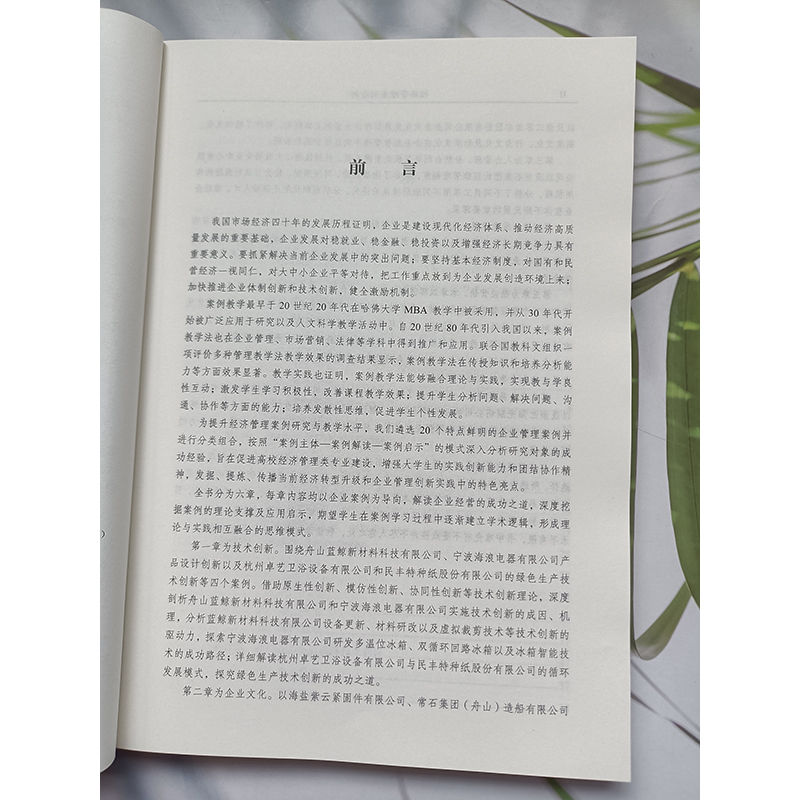 前 言
我国市场经济四十年的发展历程证明，企业是建设现代化经济体系、推动经济高质
量发展的重要基础，企业发展对稳就业、稳金融、稳投资以及增强经济长期竞争力具有
重要意义。要抓紧解决当前企业发展中的突出问题；要坚持基本经济制度，对国有和民
营经济一视同仁，对大中小企业平等对待，把工作重点放到为企业发展创造环境上来；
加快推进企业体制创新和技术创新，健全激励机制。
案例教学最早于 20 世纪 20 年代在哈佛大学 MBA 教学中被采用，并从 30 年代开
始被广泛应用于研究以及人文科学教学活动中。自 20 世纪 80 年代引入我国以来，案例
教学法也在企业管理、市场营销、法律等学科中得到推广和应用。联合国教科文组织一
项评价多种管理教学法教学效果的调查结果显示，案例教学法在传授知识和培养分析能
力等方面效果显著。教学实践也证明，案例教学法能够融合理论与实践，实现教与学良
性互动；激发学生学习积极性，改善课程教学效果；提升学生分析问题、解决问题、沟
通、协作等方面的能力；培养发散性思维，促进学生个性发展。
为提升经济管理案例研究与教学水平，我们遴选 20 个特点鲜明的企业管理案例并
进行分类组合，按照“案例主体—案例解读—案例启示”的模式深入分析研究对象的成
功经验，旨在促进高校经济管理类专业建设，增强大学生的实践创新能力和团结协作精
神，发掘、提炼、传播当前经济转型升级和企业管理创新实践中的特色亮点。
全书分为六章，每章内容均以企业案例为导向，解读企业经营的成功之道，深度挖
掘案例的理论支撑及应用启示，期望学生在案例学习过程中逐渐建立学术逻辑，形成理
论与实践相互融合的思维模式。
第一章为技术创新。围绕舟山蓝鲸新材料科技有限公司、宁波海浪电器有限公司产
品设计创新以及杭州卓艺卫浴设备有限公司和民丰特种纸股份有限公司的绿色生产技
术创新等四个案例。借助原生性创新、模仿性创新、协同性创新等技术创新理论，深度
剖析舟山蓝鲸新材料科技有限公司和宁波海浪电器有限公司实施技术创新的成因、机
理，分析蓝鲸新材料科技有限公司设备更新、材料研改以及虚拟裁剪技术等技术创新的
驱动力，探索宁波海浪电器有限公司研发多温位冰箱、双循环回路冰箱以及冰箱智能技
术的成功路径；详细解读杭州卓艺卫浴设备有限公司与民丰特种纸股份有限公司的循环
发展模式，探究绿色生产技术创新的成功之道。
第二章为企业文化。以海盐紫云紧固件有限公司、常石集团（舟山）造船有限公司